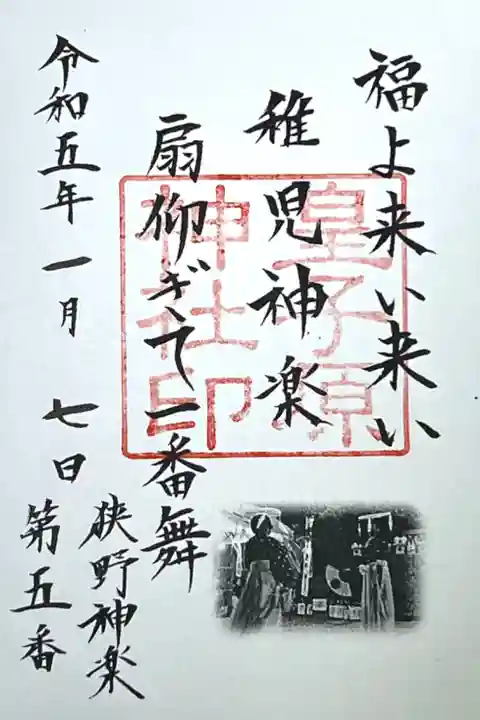 福よ来い来い
稚児神楽
扇仰ぎて一番舞
令和五年一月 七日
狭野神楽
第五番
皇子原
神社印